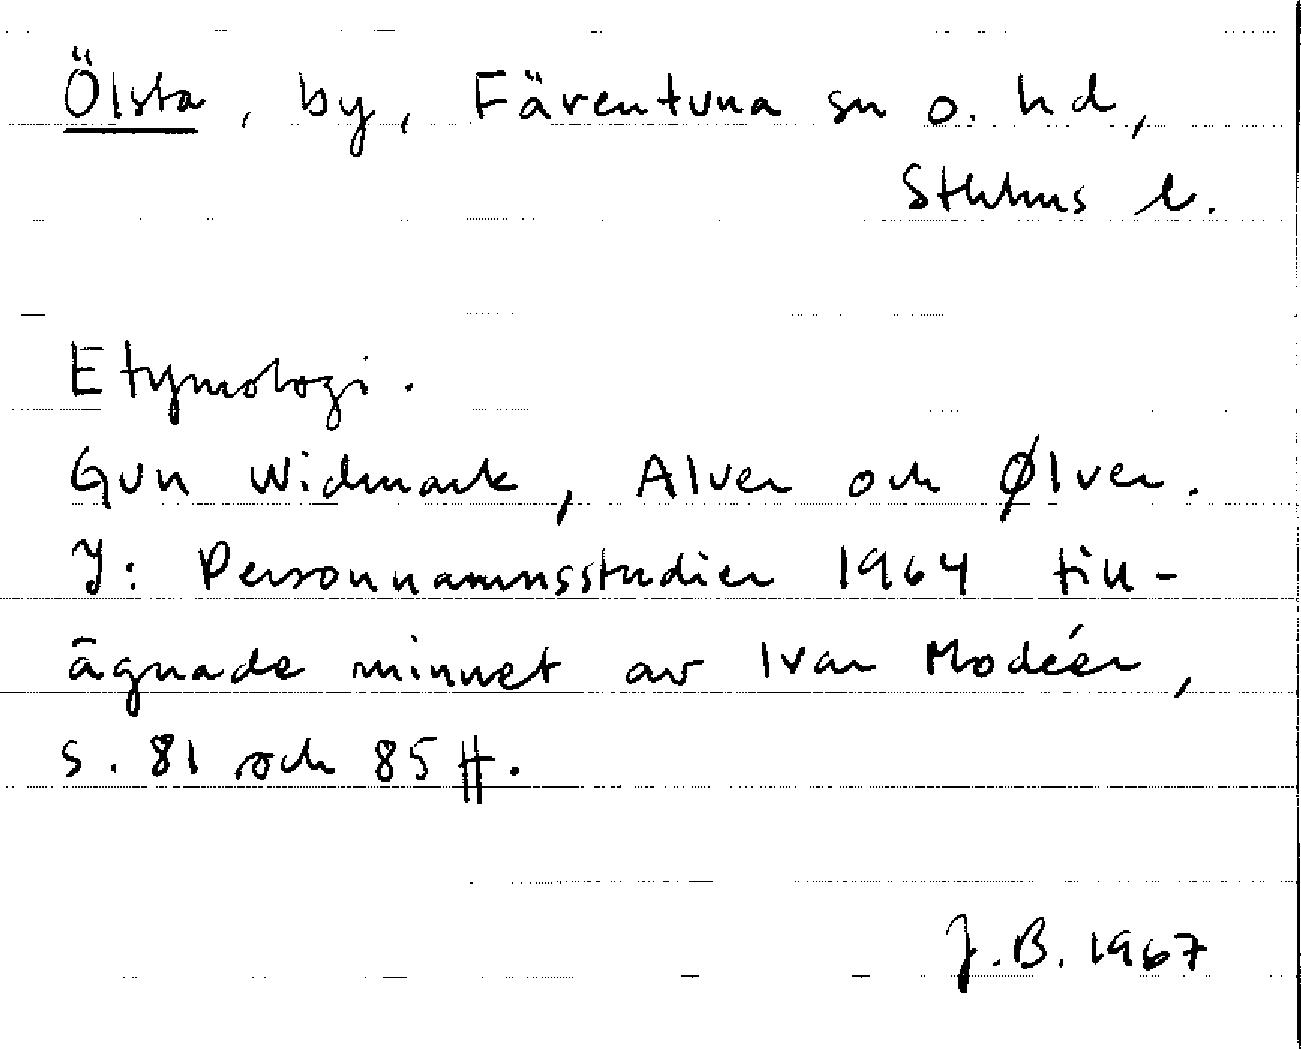 Ölsta, by, Färentuna sn o. hd,
Sthlms l.
Etymologi.
Gun Widmark, Alver och Ølver.
I: Personnamnsstudier 1964 till-
ägnade minnet av Ivar Modéer,
s. 81 och 85 ff.
J.B. 1967